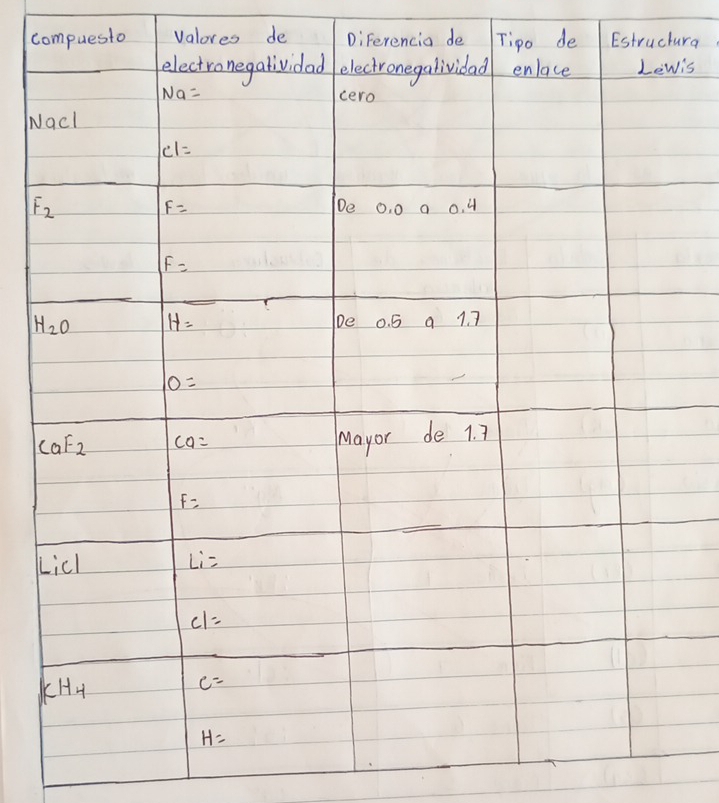 Compuesto
Valores de electronegatividad
Diferencia de electronegatividad
Tipo de enlace
Estructura Lewis
Nacl
Na=
cl=
cero
F2
F=
F=
De 0.0 a 0.4
H2O
H=
O=
De 0.5 a 1.7
CaF2
Ca=
F=
Mayor de 1.7
Licl
Li=
cl=
CH4
C=
H=